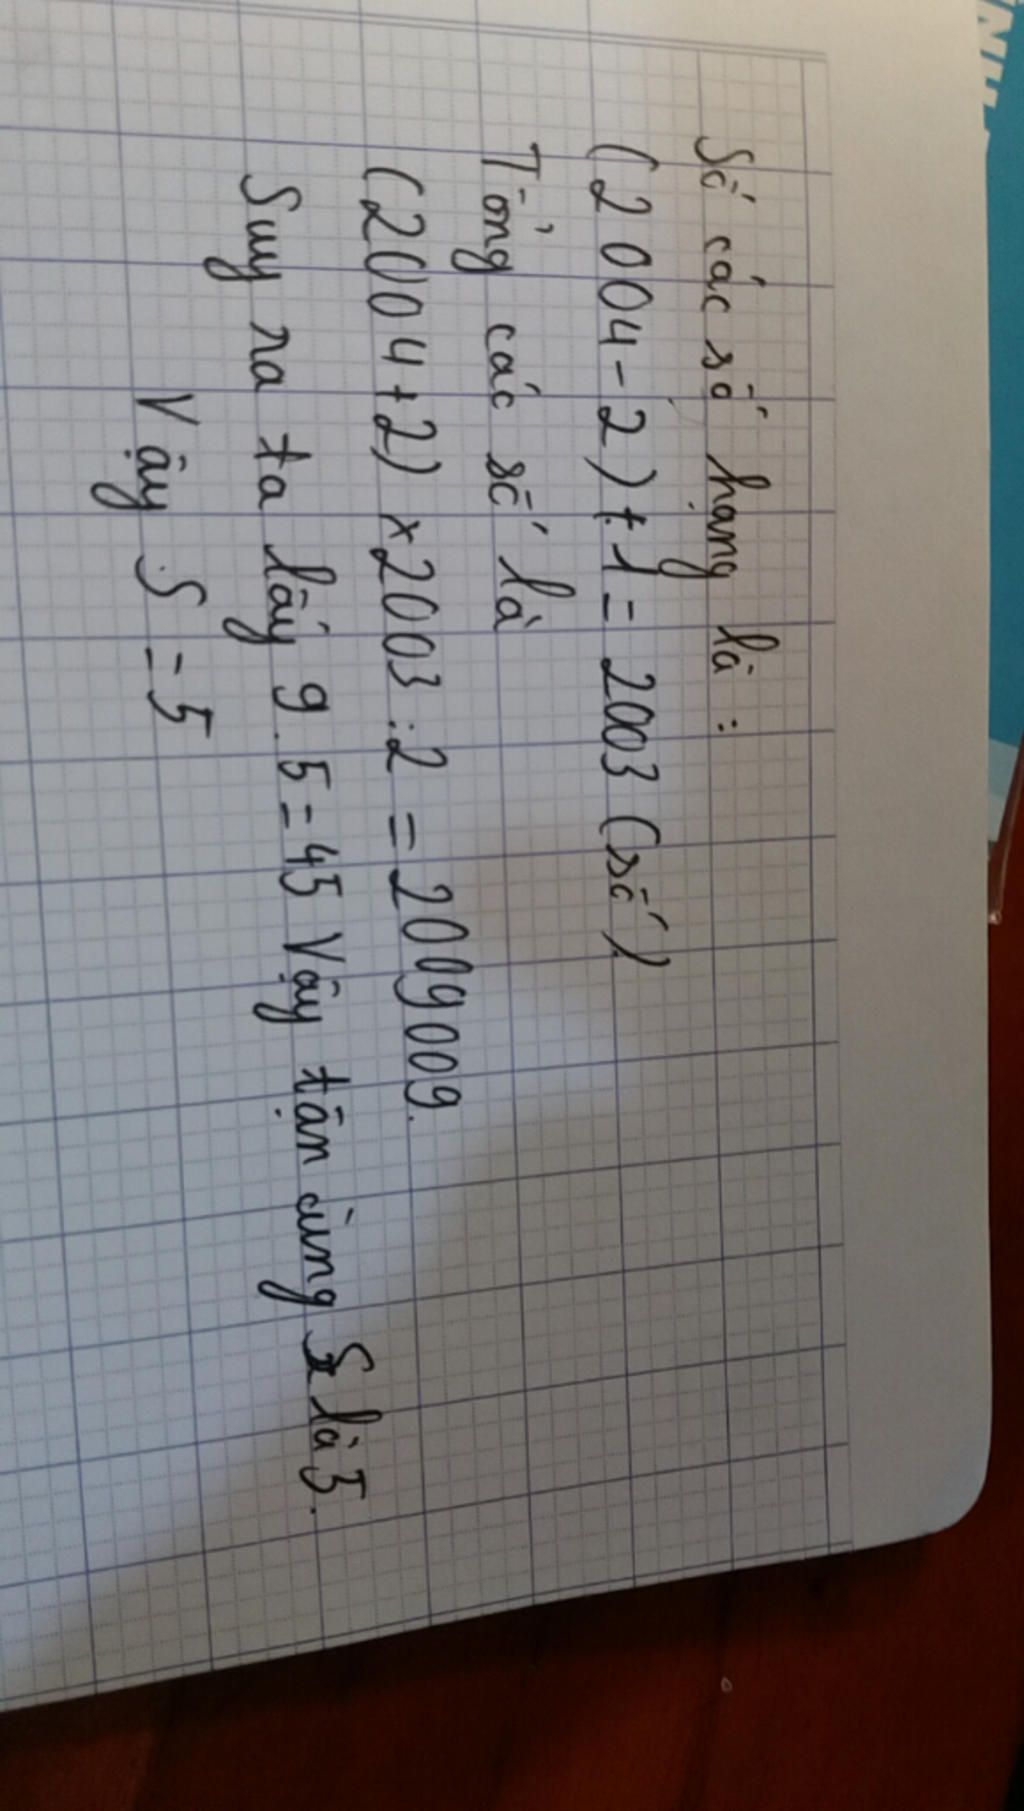 Số các số hạng là :
(2004-2)+1 = 2003 (số)
Tổng các số là
(2004+2) x2003 :2 = 2009009.
Suy ra ta lấy 9.5=45 Vậy tận cùng S là 5.
Vậy S = 5